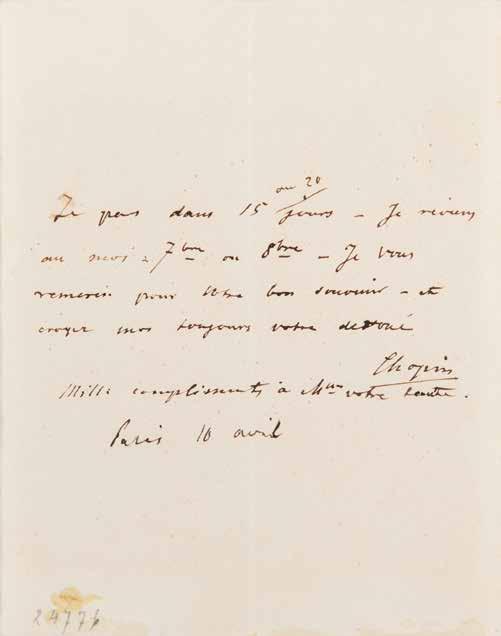 ou 20
Je pars dans 15 jours – Je reviens
au mois – 7bre ou 8bre – Je vous
remercie pour votre bon souvenir – et
croyez moi toujours votre dévoué
Chopin
Mille complissents à Mme votre tante.
Paris 10 avril
2477b